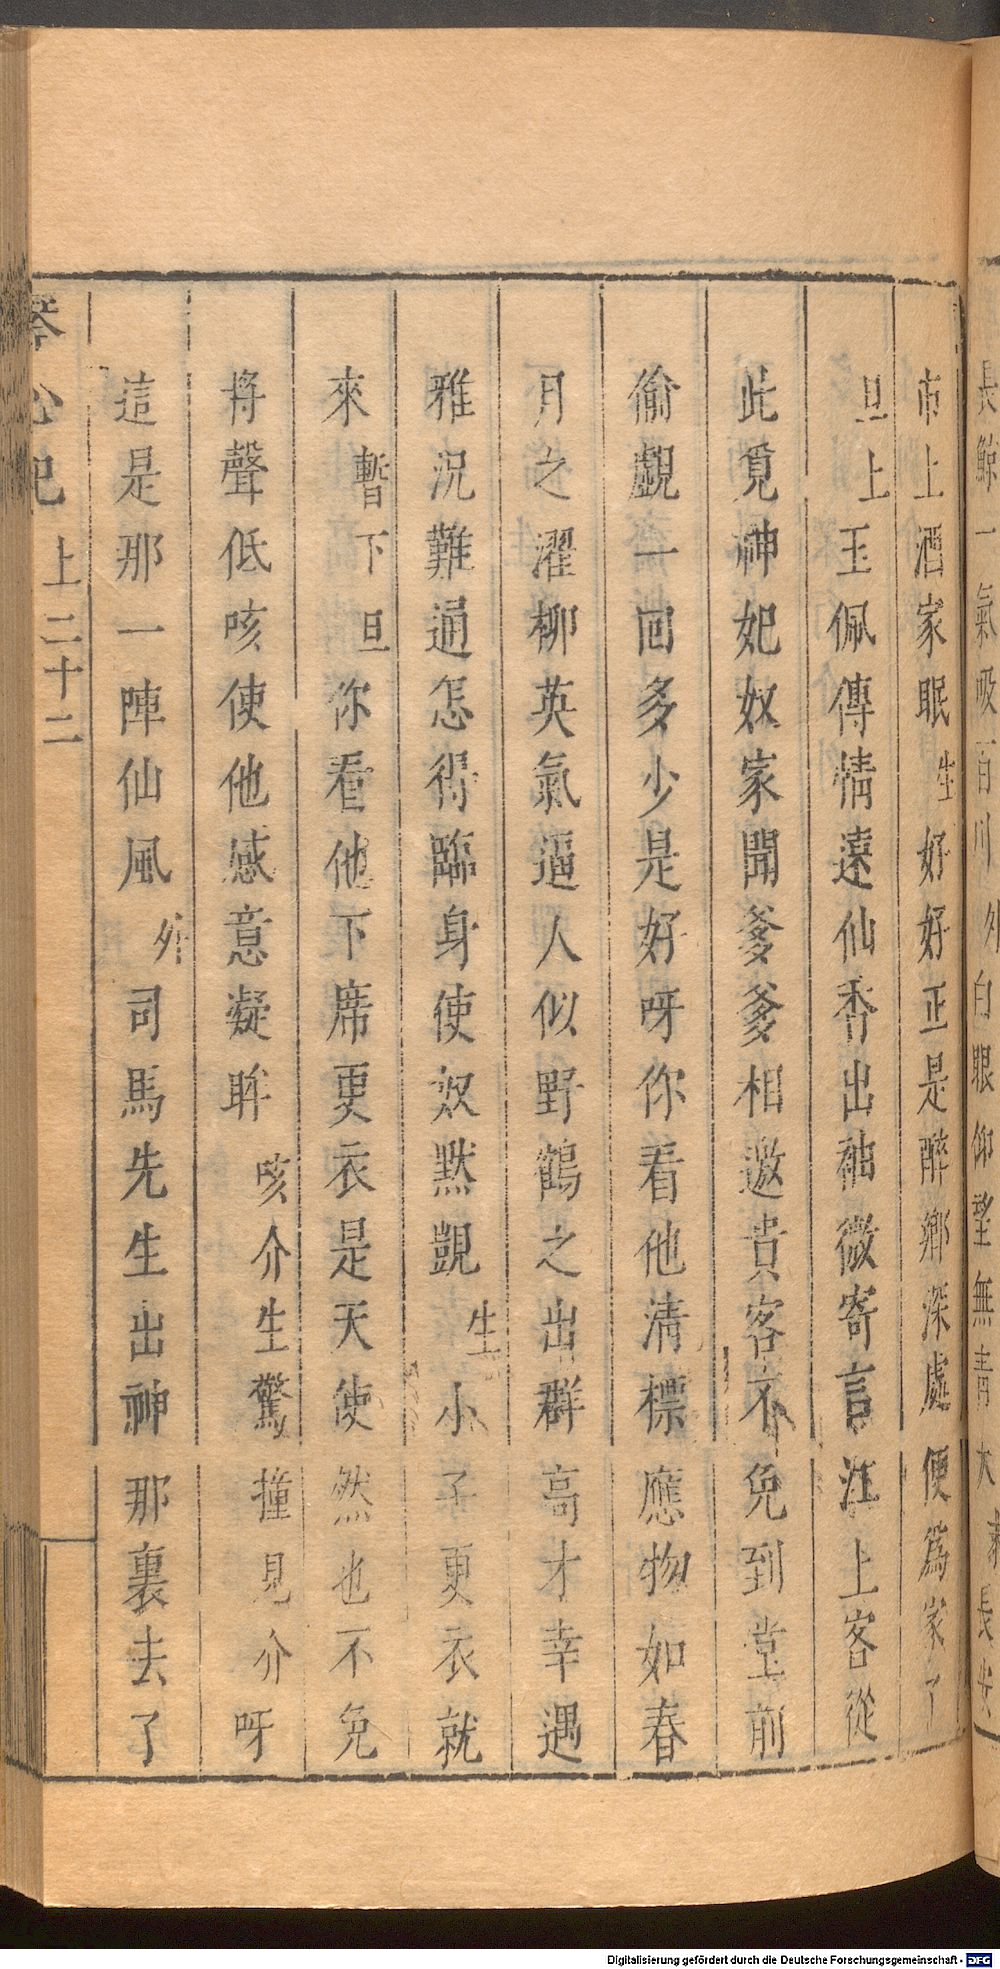 長鯨一氣吸百川外白眼仰望無青天
市上酒家眠生好好正是醉鄉深處便爲家了
旦上玉佩傳情遠仙香出袖微寄言江上客從
此覓神妃奴家聞爹爹相邀貴客不免到堂前
偷覷一回多少是好呀你看他清標應物如春
月之濯柳英氣逼人似野鶴之出群高才幸遇
雅況難通怎得臨身使奴默覬生小子更衣就
來暫下旦你看他下席更衣是天使然也不免
將聲低咳使他感意凝眸咳介生驚撞見介呀
這是那一陣仙風外司馬先生出神那裏去了
琴心記 上 二十二
Digitalisierung gefördert durch die Deutsche Forschungsgemeinschaft - DFG